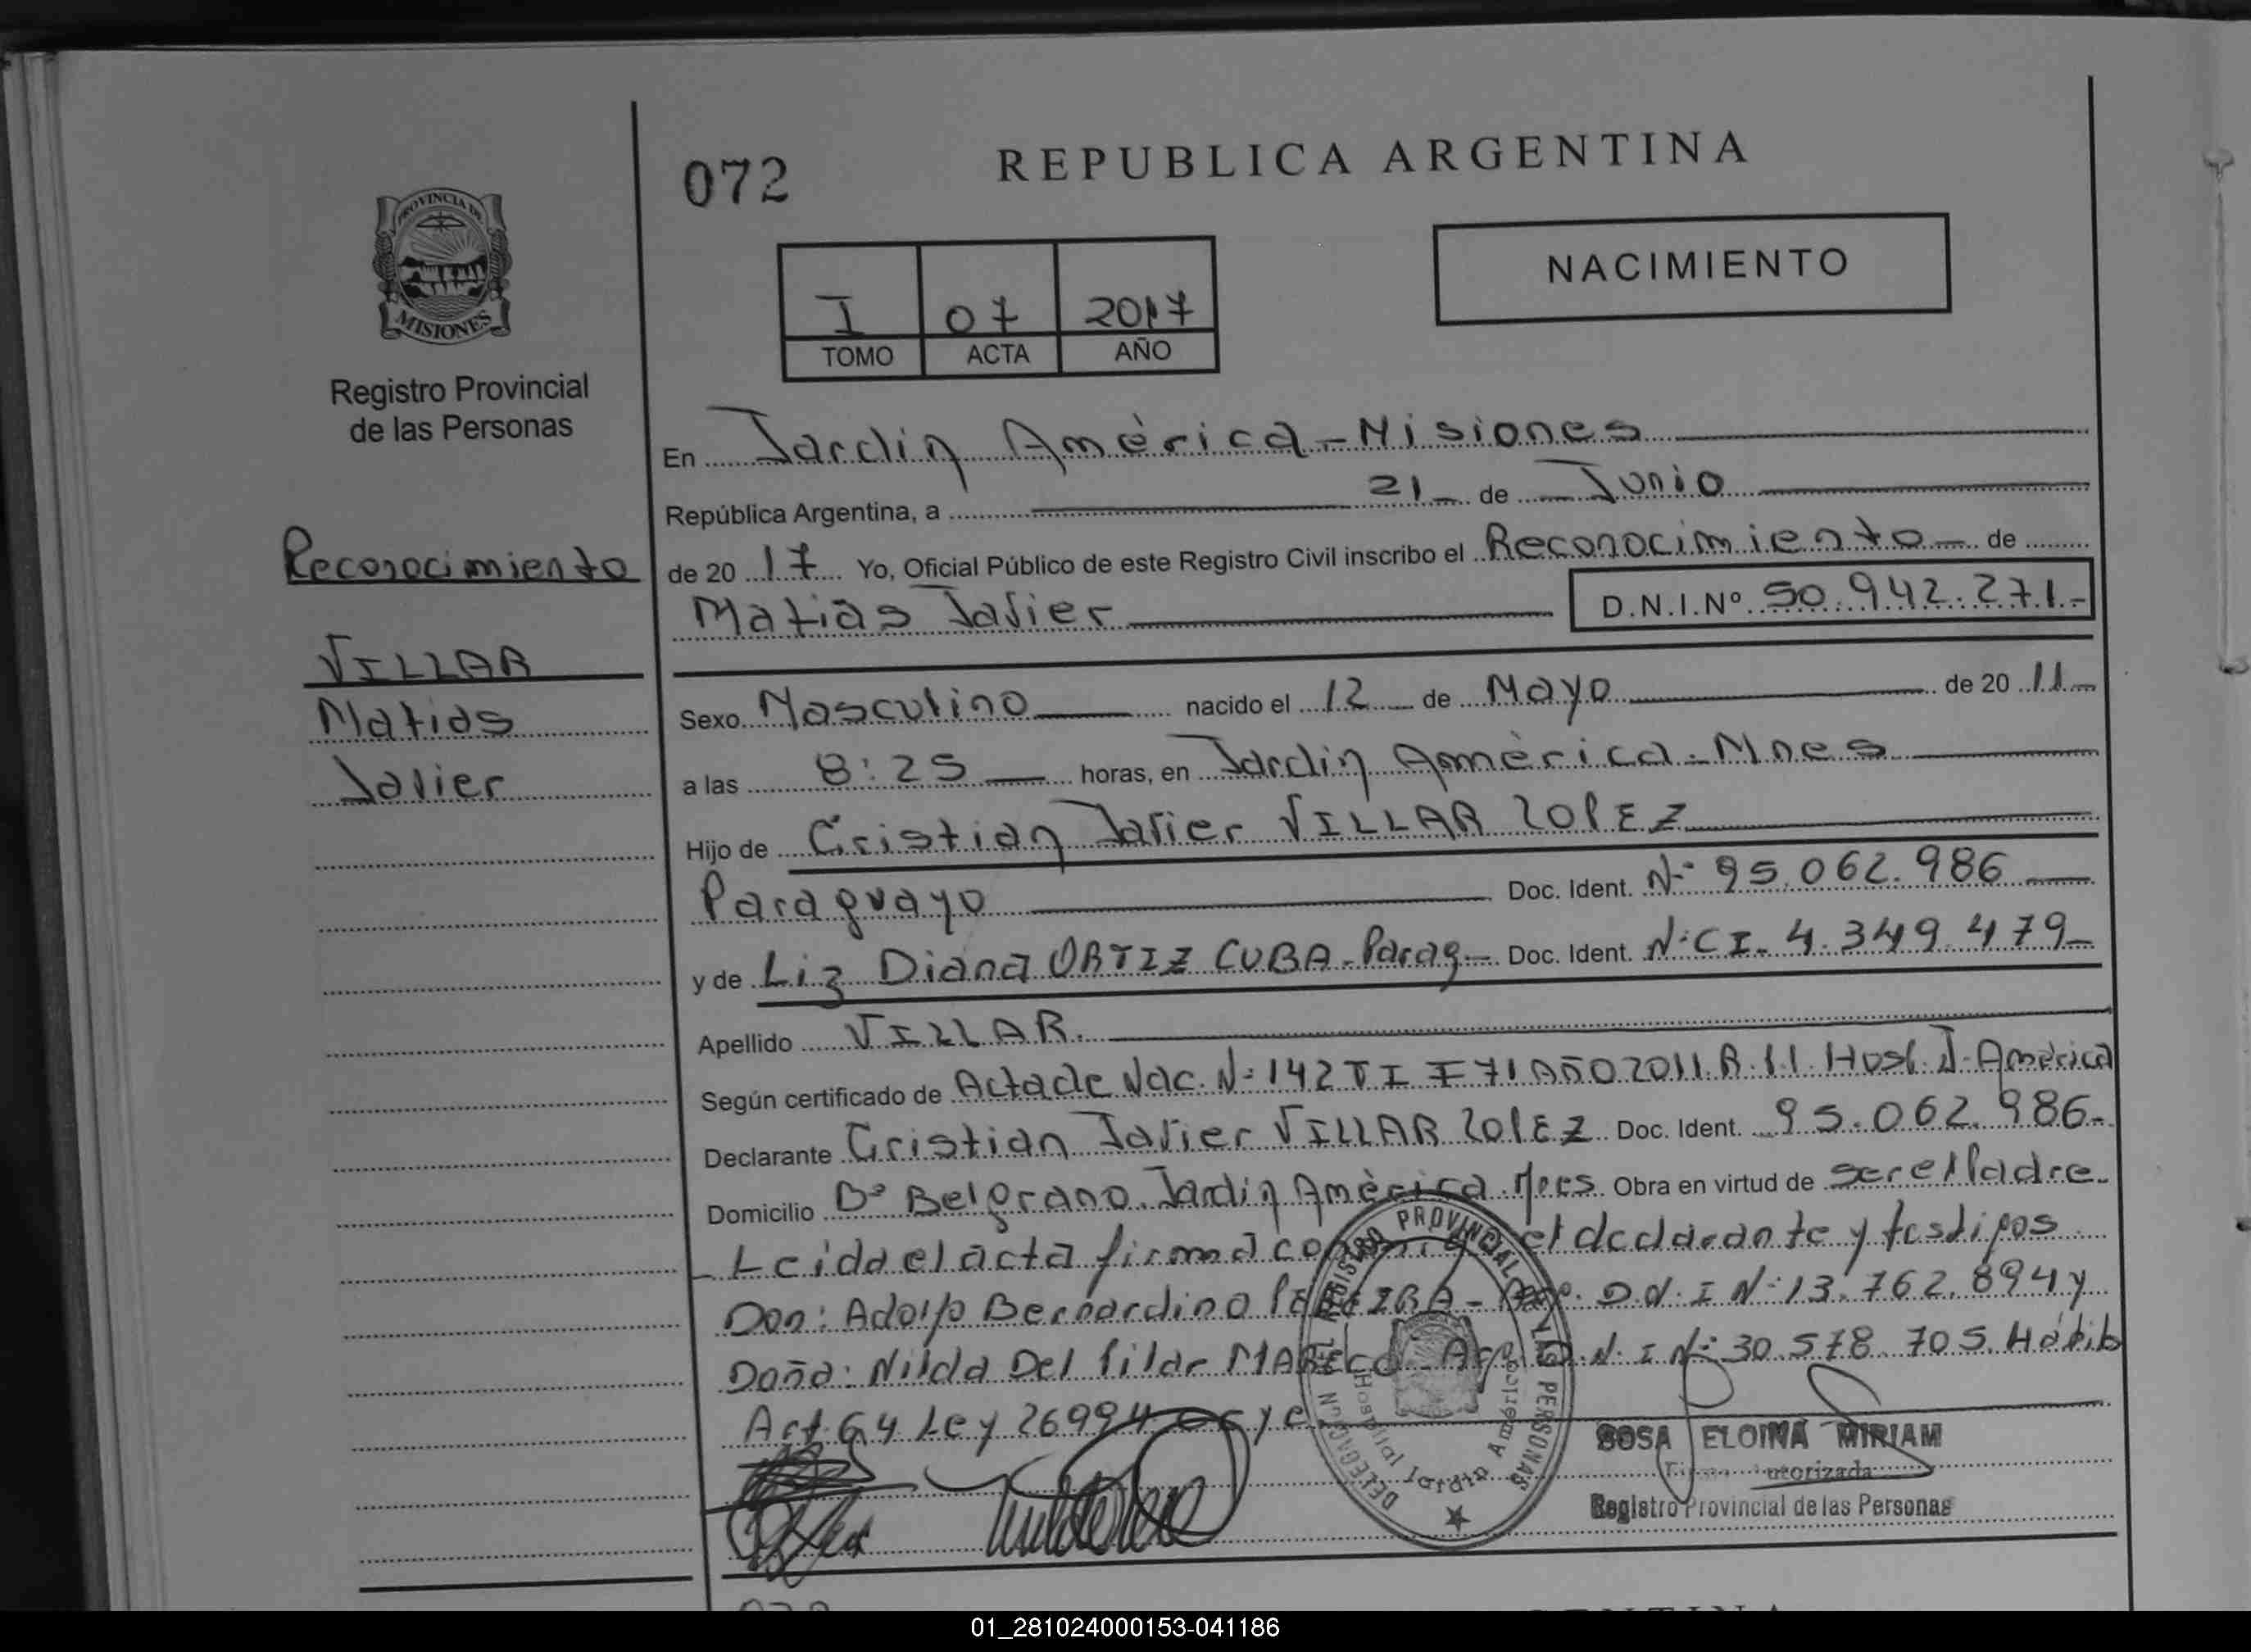 072
REPUBLICA ARGENTINA
PROVINCIA DE
MISIONES
Registro Provincial
de las Personas
I 07 2017
TOMO ACTA AÑO
NACIMIENTO
En Jardin Amèrica-Misiones
República Argentina, a 21 de Junio
de 20 17 Yo, Oficial Público de este Registro Civil inscribo el Reconocimiento de
Matias Javier D.N.I.Nº 50.942.271-
Reconocimiento
VILLAR
Matias
Javier
Sexo Masculino nacido el 12 de Mayo de 20 11
a las 8:25 horas, en Jardin Amèrica-Mnes
Hijo de Cristian Javier VILLAR LOPEZ
Paraguayo Doc. Ident. Nº 95.062.986
y de Liz Diana ORTIZ CUBA-Parag- Doc. Ident. N:CI-4.349.479-
Apellido VILLAR.
Según certificado de Acta de Nac. N:142 T I F 71 AÑO 2011. R.11. Hosp. J. Amèrica
Declarante Cristian Javier VILLAR LOPEZ Doc. Ident. 95.062.986-
Domicilio Bº Belgrano. Jardin Amèrica. Mnes Obra en virtud de ser el Padre-
Leida el acta firma el declarante y testigos
Don: Adolfo Bernardino D.N.I N:13.762.894 y
Doña: Nilda Del Pilar D.N.I N:30.578.705. Hábil
Art. 64 Ley 26994
DELEGACION DEL REGISTRO PROVINCIAL DE LAS PERSONAS
Hospital Jardin América
SOSA ELOINA MIRIAM
Firma Autorizada
Registro Provincial de las Personas
01_281024000153-041186